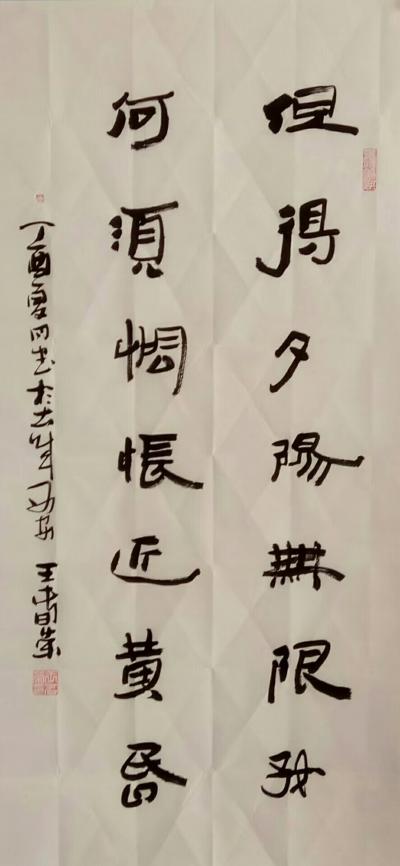 但得夕陽無限好
何須惆悵近黃昏
丁酉夏月書於古都西安 王書榮